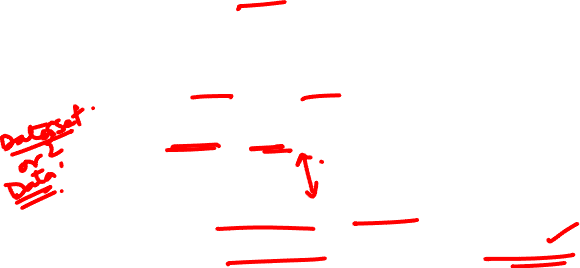 Dataset.
or
Data.